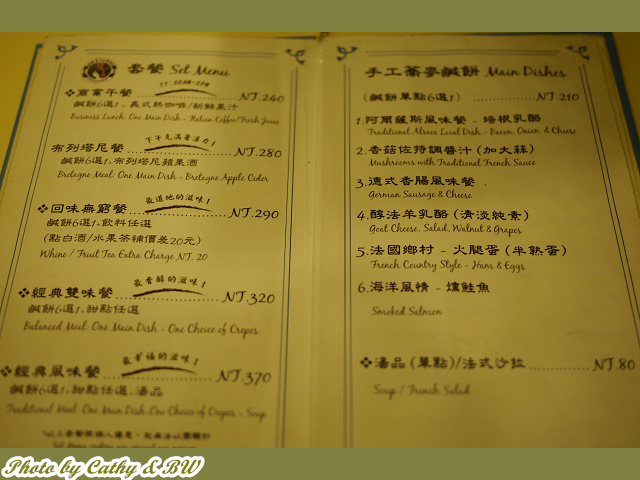 套餐 Set Menu
11:30AM-2PM
❖商業午餐 NT.240
鹹餅6選1，義式熱咖啡/新鮮果汁
Business Lunch: One Main Dish + Italian Coffee/Fresh Juice
下午充滿著活力！
布列塔尼餐 NT.280
鹹餅6選1，布列塔尼蘋果酒
Bretagne Meal: One Main Dish + Bretagne Apple Cider
最道地的滋味！
❖回味無窮餐 NT.290
鹹餅6選1，飲料任選
(點白酒/水果茶補價差20元)
Whine / Fruit Tea Extra Charge NT. 20
最香醇的滋味！
❖經典雙味餐 NT.320
鹹餅6選1，甜點任選
Balanced Meal: One Main Dish + One Choice of Crepes
最幸福的滋味！
❖經典風味餐 NT.370
鹹餅6選1，甜點任選，湯品
Traditional Meal: One Main Dish+One Choice of Crepes + Soup
手工蕎麥鹹餅 Main Dishes
(鹹餅單點6選1) NT.210
1.阿爾薩斯風味餐 - 培根乳酪
Traditional Alsace Local Dish - Bacon, Onion & Cheese
2.香菇佐特調醬汁 (加大蒜)
Mushrooms with Traditional French Sauce
3.德式香腸風味餐
German Sausage & Cheese
4.醇法羊乳酪 (清淡純素)
Goat Cheese, Salad, Walnut & Grapes
5.法國鄉村 - 火腿蛋 (半熟蛋)
French Country Style - Ham & Eggs
6.海洋風情 - 燻鮭魚
Smoked Salmon
❖湯品 (單點)/法式沙拉 NT.80
Soup / French Salad
Photo by Cathy & BW